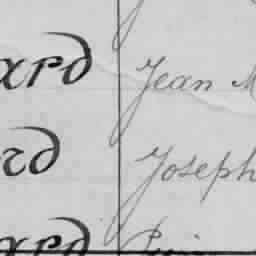 ard Jean M
rd Joseph
ard